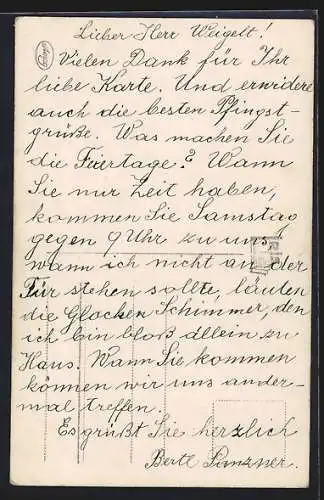 Lieber Herr Weigelt!
Vielen Dank für Ihr
liebe Karte. Und erwidere
auch die besten Pfingst-
grüße. Was machen Sie
die Feiertage? Wann
Sie nur Zeit haben,
kommen Sie Samstag
gegen 9 Uhr zu uns,
wann ich nicht an der
Tür stehen sollte, läuten
die Glocken Schimmer, den
ich bin bloß allein zu
Haus. Wann Sie kommen
können wir uns ander-
mal treffen.
Es grüßt Sie herzlich
Bertl Lanzner.